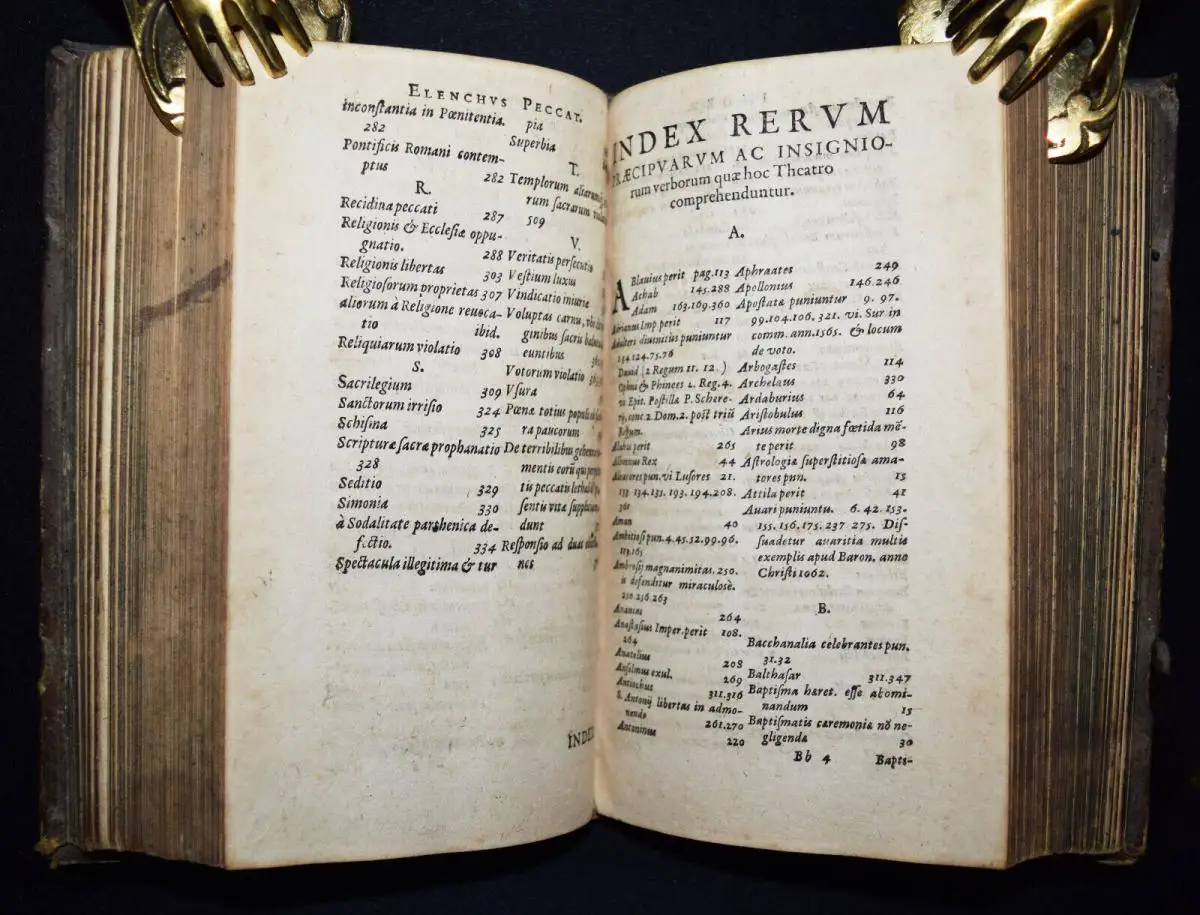 ELENCHVS PECCAT.
inconstantia in Pœnitentia.
282
Pontificis Romani contem-
ptus 282
R.
Recidiua peccati 287
Religionis & Ecclesiæ oppu-
gnatio. 288
Religionis libertas 303
Religiosorum proprietas 307
aliorum à Religione reuoca-
tio ibid.
Reliquiarum violatio 308
S.
Sacrilegium 309
Sanctorum irrisio 324
Schisma 325
Scripturæ sacræ prophanatio
328
Seditio 329
Simonia 330
à Sodalitate parthenica de-
fectio. 334
Spectacula illegitima & tur
pia
Superbia
T.
Templorum
rum sacrarum
509
V.
Veritatis persecutio
Vestium luxus
Vindicatio iniuriæ
Voluptas
ginibus sacris
euntibus
Votorum violatio
Vsura
Pœnæ totius
ra paucorum
De terribilibus
mentis eorũ qui
tis peccatis
sentis vitæ
dunt
Responsio ad duas
nes
INDEX
INDEX RERVM
PRÆCIPVARVM AC INSIGNIO-
rum verborum quæ hoc Theatro
comprehenduntur.
A.
ABlauius perit pag.113
Achab 145.288
Adam 163.169.360
Adrianus Imp perit 117
Adulteri diuinitus puniuntur
134.124.75.76
Dauid (2 Regum 11. 12.)
Ophni & Phinees 1. Reg. 4.
vi Epit. Postillæ P. Schere-
rij, conc. 2 Dom. 2. post triũ
Regum.
perit 265
Rex 44
Aleatores pun. vi Lusores 21.
133 134.135. 193. 194.208.
361
Aman 40
Ambitiosi pun. 4.45.52.99.96.
113.165
Ambrosij magnanimitas. 250.
is defenditur miraculosè.
250.256.263
Ananias 264
Anastasius Imper. perit 108.
264
Anatolius 208
Anselmus exul. 269
Antiochus 311.316
S. Antonij libertas in admo-
nendo 261.270
Antoninus 220
Aphraates 249
Apollonius 146.246
Apostatæ puniuntur 9. 97.
99.104.106. 321. vi. Sur in
comm. ann.1565. & locum
de voto.
Arbogastes 114
Archelaus 330
Ardaburius 64
Aristobulus 116
Arius morte digna fœtida mẽ-
te perit 98
Astrologiæ superstitiosæ ama-
tores pun. 15
Attila perit 41
Auari puniuntu. 6. 42. 153.
155. 156.175. 237 275. Dis-
suadetur auaritia multis
exemplis apud Baron. anno
Christi 1062.
B.
Bacchanalia celebrantes pun.
31.32
Balthasar 311.347
Baptisma hæret. esse abomi-
nandum 15
Baptismatis cæremonia nõ ne-
gligenda 30
Bb 4 Bapti-